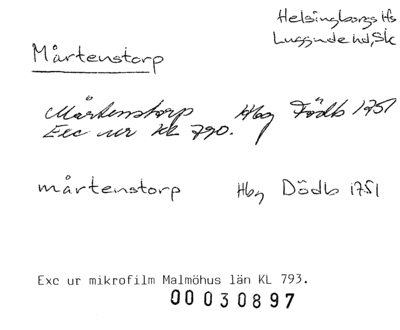 Helsingborgs lfs
Luggude hd, Sk
Mårtenstorp
Mårtenstorp Hbg Födb 1751
Exc ur KL 790.
mårtenstorp Hbg Dödb 1751
Exc ur mikrofilm Malmöhus län KL 793.
00030897